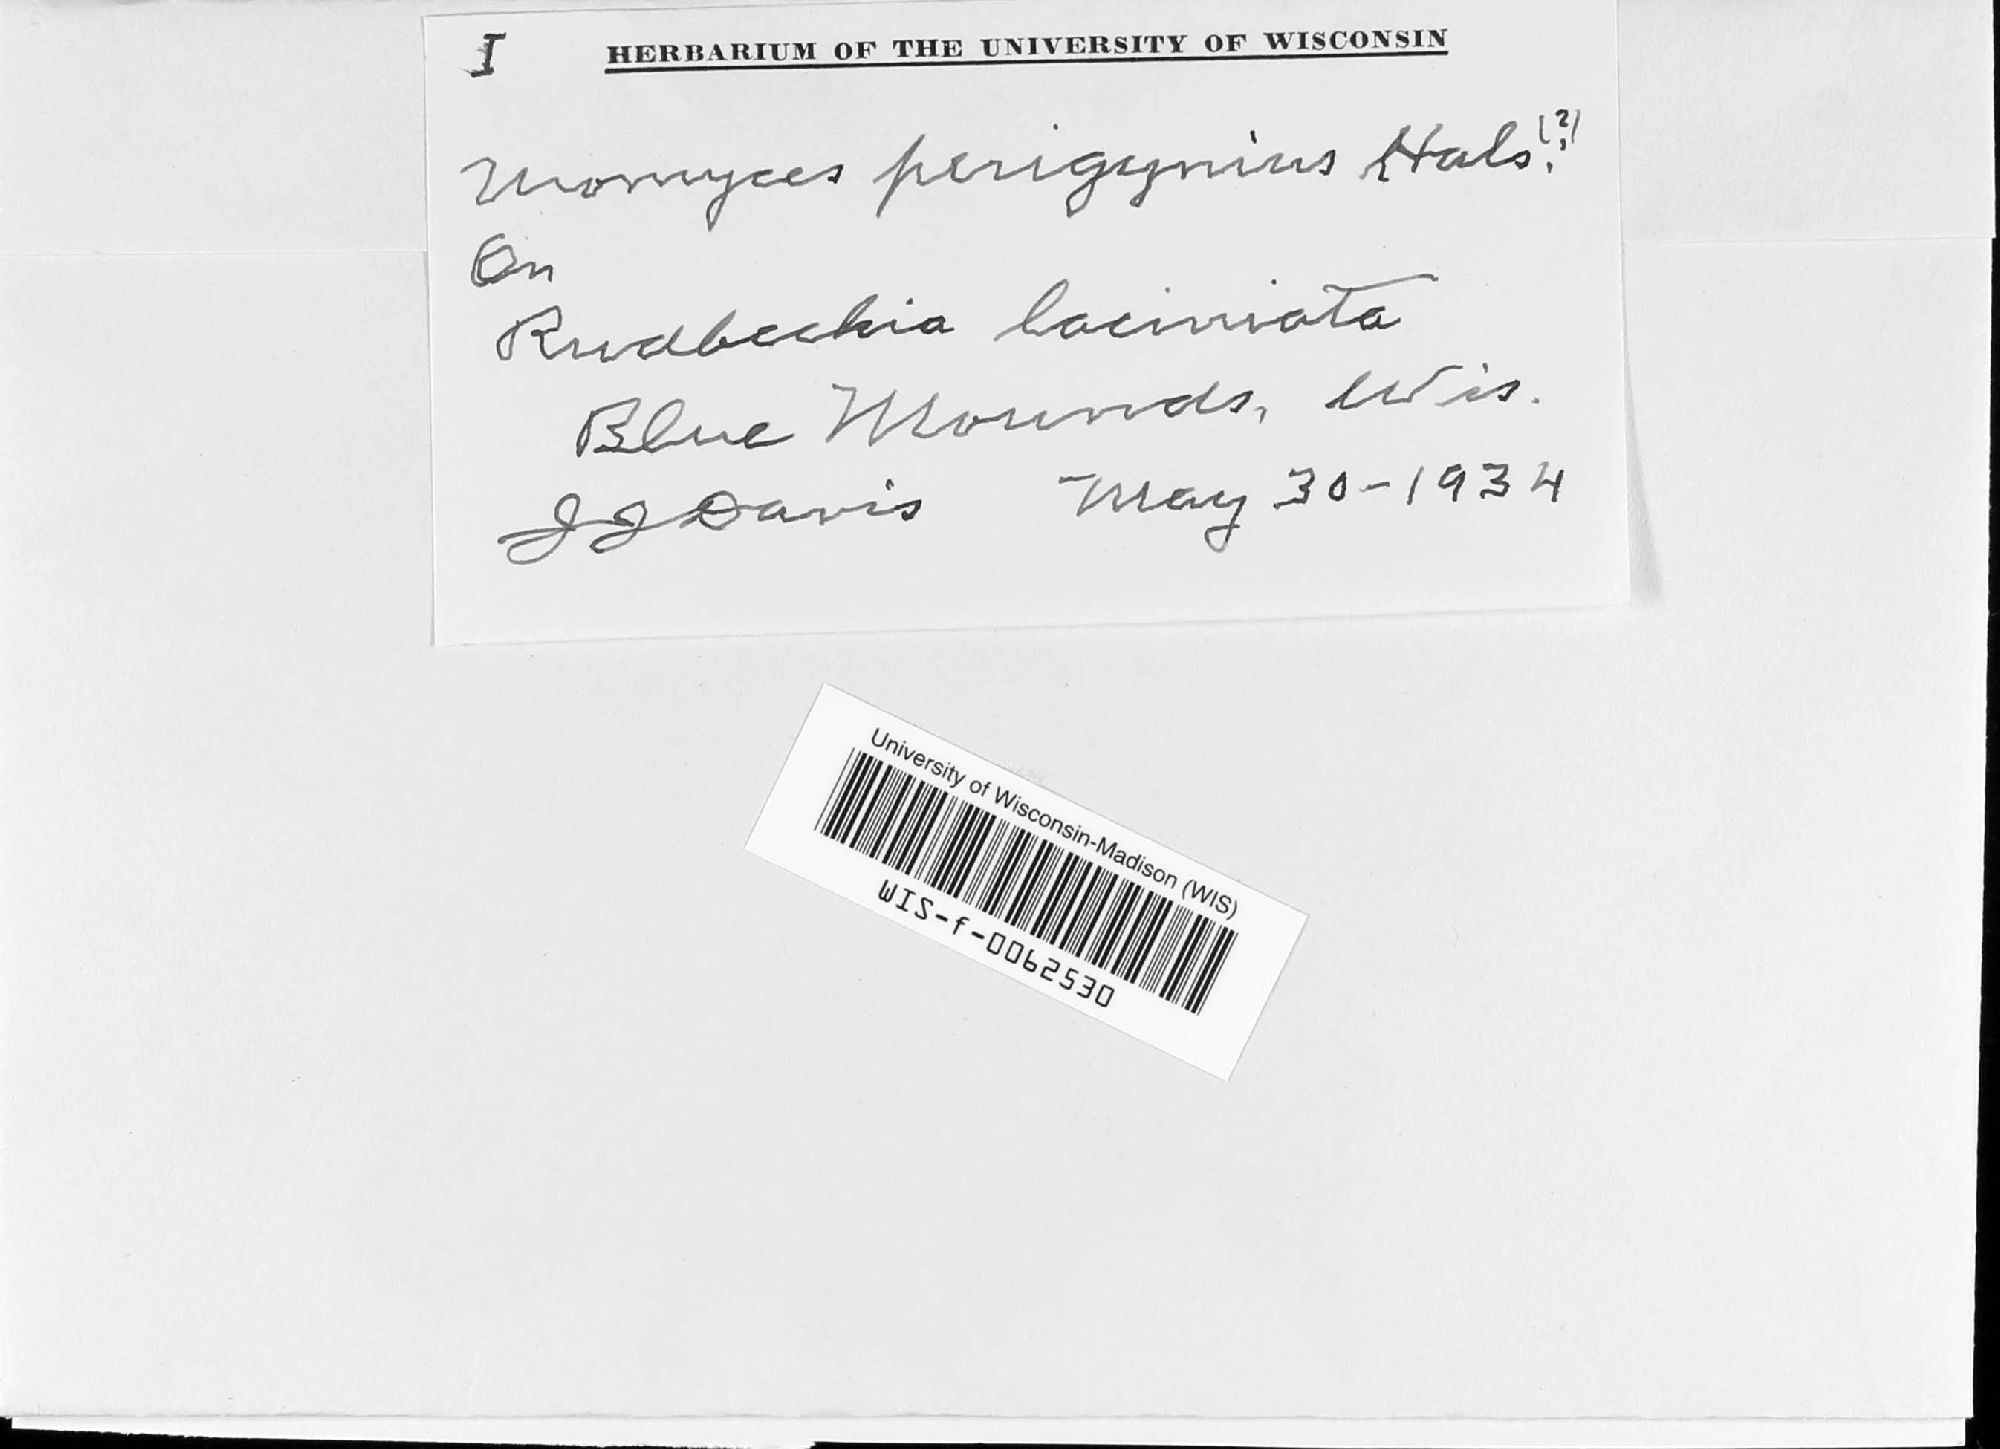 I HERBARIUM OF THE UNIVERSITY OF WISCONSIN
Uromyces perigynius Hals. (?)
On
Rudbeckia laciniata
Blue Mounds, Wis.
JJ Davis May 30-1934
University of Wisconsin-Madison (WIS)
WIS-f-0062530